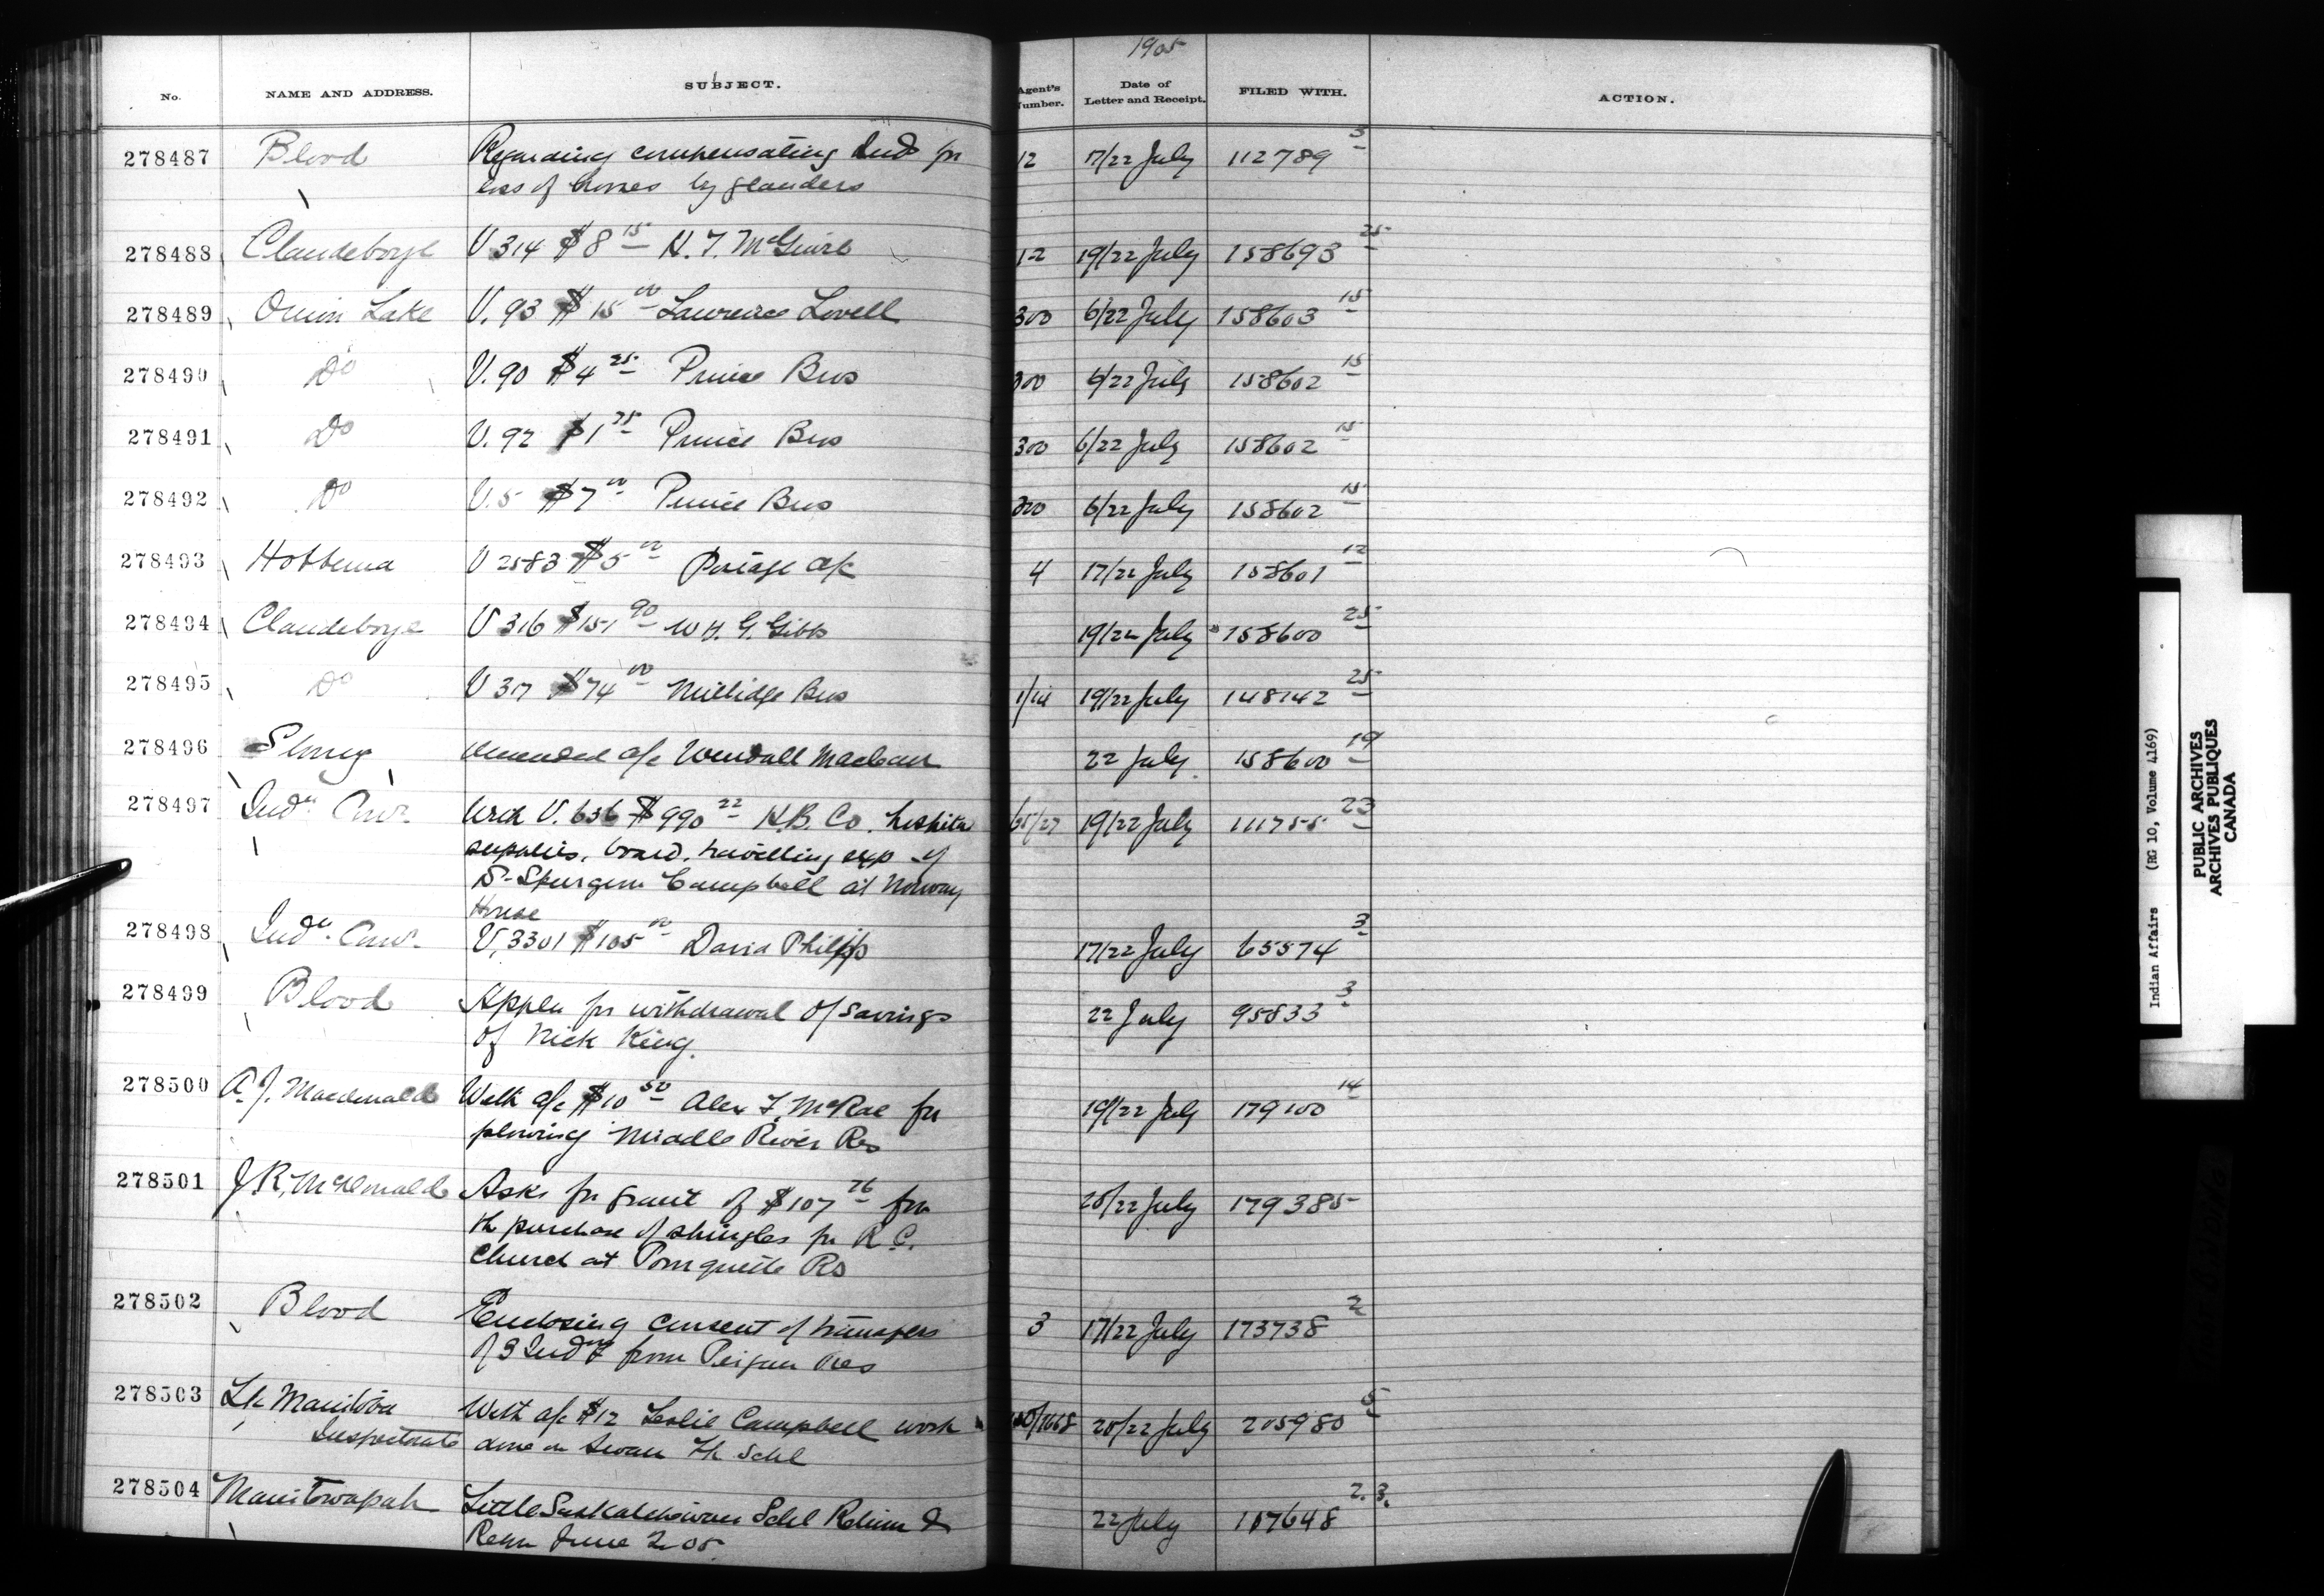 1905
No. NAME AND ADDRESS. SUBJECT. Agent's Number. Date of Letter and Receipt. FILED WITH. ACTION.
278487 Blood Regarding compensating Inds for 12 17/22 July 112789 3
loss of horses by glanders
278488 Clandeboye V 314 $8 15 H. T. McGuire 12 19/22 July 158693 25
278489 Onion Lake V. 93 $15 00 Lawrence Lovell 300 6/22 July 158603 15
278490 Do V. 90 $4 25 Prince Bros 300 6/22 July 158602 15
278491 Do V. 92 $1 75 Prince Bros 300 6/22 July 158602 15
278492 Do V. 5 $7 00 Prince Bros 300 6/22 July 158602 15
278493 Hobbema V 2583 $5 00 Postage a/c 4 17/22 July 158601 12
278494 Clandeboye V 316 $151 90 W. H. G. Gibbs 19/22 July 158600 25
278495 Do V 317 $74 00 Millidge Bros 1/14 19/22 July 148142 25
278496 amended a/c Wendall Maclean 22 July 158600 19
278497 Indn Comr. With V. 636 $990 22 H.B. Co. 65/27 19/22 July 111755 23
supplies, board, travelling exp of
D. Spurgeon Campbell at Norway
House
278498 Indn. Comr. V. 3301 $105 00 David Philipp 17/22 July 65574 3
278499 Blood Appln for withdrawal of savings 22 July 95833 3
of Nick King.
278500 A. J. Macdonald With a/c $10 50 Alex F. McRae for 19/22 July 179100 14
plowing Middle River Res
278501 J. R. McDonald Asks for grant of $107 26 for 20/22 July 179385
the purchase of shingles for R.C.
Church at Pomquette Rs
278502 Blood Enclosing consent of transfers 3 17/22 July 173738 2
of 3 Inds from Peigan Res
278503 Lk Manitoba With a/c $12 Leslie Campbell work 20/22 July 205980 5
Inspectorate done on Swan Lk Schl
278504 Manitowapah Little Saskatchewan Schl Return & 22 July 107648 2. 3.
Retn June 2 05
Indian Affairs (RG 10, Volume 4169)
PUBLIC ARCHIVES
ARCHIVES PUBLIQUES
CANADA